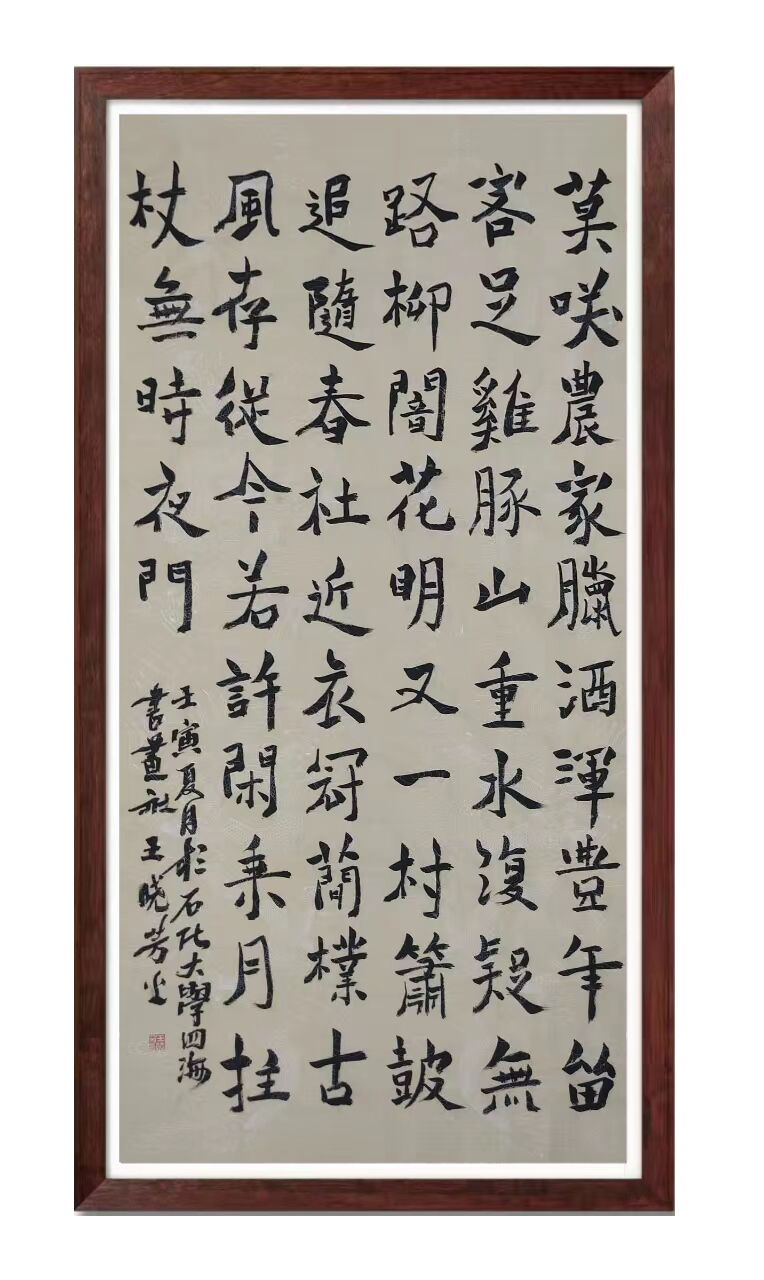 莫咲農家臘酒渾豊年留
客足雞豚山重水復疑無
路柳闇花明又一村簫皷
追隨春社近衣冠簡樸古
風存從今若許閑乗月拄
杖無時夜門
壬寅夏月於石化大學四海
書畫社王晓芳书